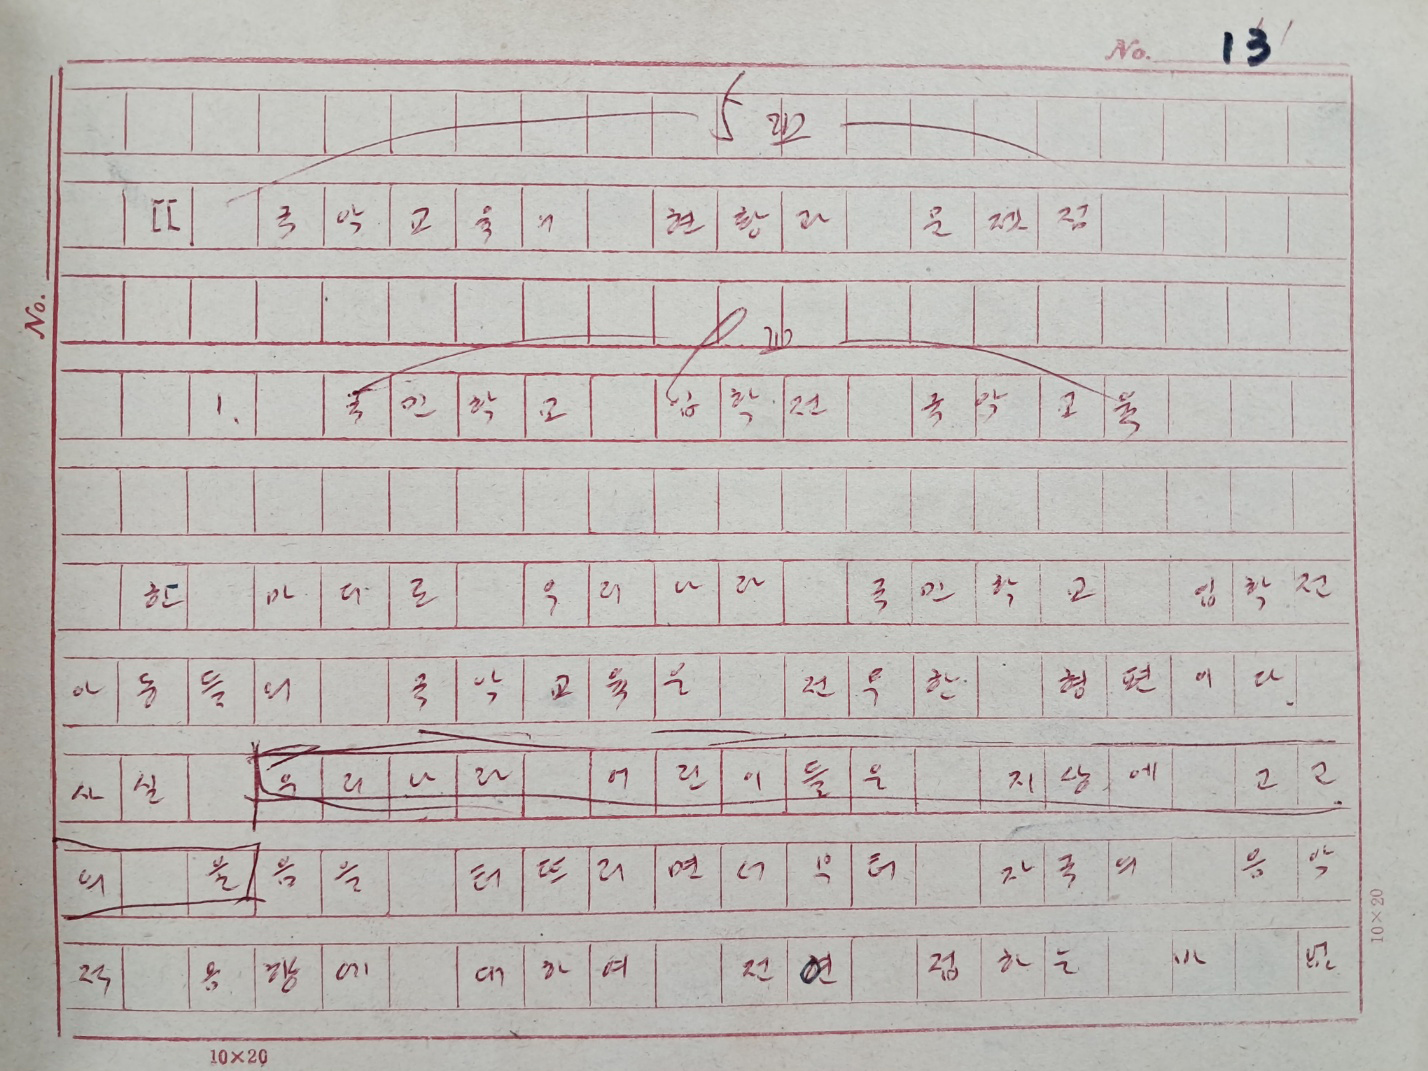 No. 13
5 Ⅲ
II 국악교육의 현황과 문제점
1. 국민학교 입학전 국악교육
No.
한마디로 우리나라 국민학교 입학전
아동들의 국악교육은 전무한 형편이다.
사실 우리나라 어린이들은 지상에 고고
의 울음을 터뜨리면서 부터 자국의 음악
적 응향에 대하여 전연 접하는 바 없
10×20
10×20